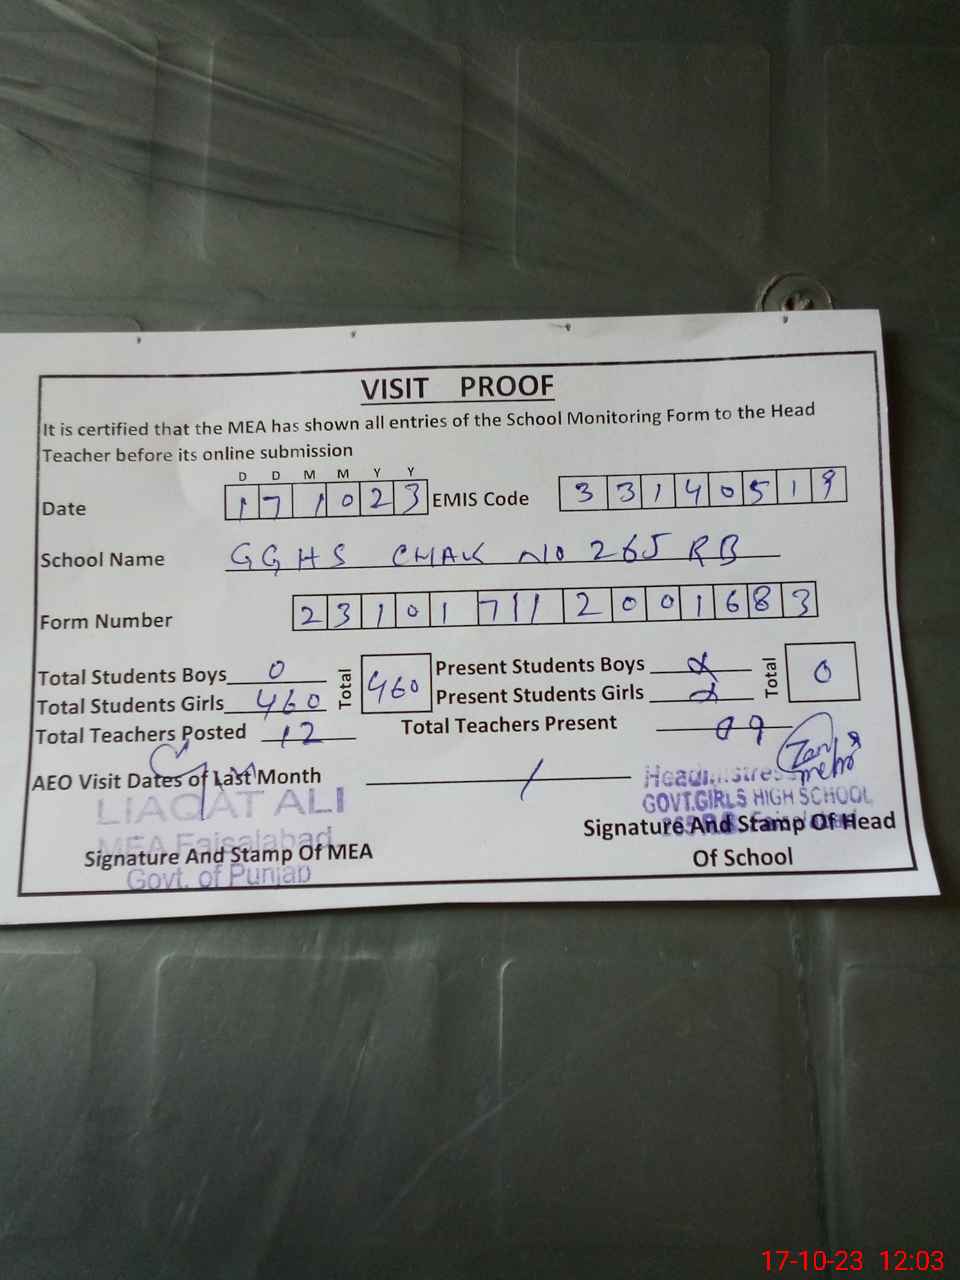 VISIT PROOF
It is certified that the MEA has shown all entries of the School Monitoring Form to the Head
Teacher before its online submission
D D M M Y Y
Date 1 7 1 0 2 3 EMIS Code 3 3 1 4 0 5 1 9
School Name GGHS CHAK NO 265 RB
Form Number 2 3 1 0 1 7 1 1 2 0 0 1 6 8 3
Total Students Boys 0 Total 460 Present Students Boys Total 0
Total Students Girls 460 Present Students Girls
Total Teachers Posted 12 Total Teachers Present 09
AEO Visit Dates of Last Month /
LIAQAT ALI
MEA Faisalabad
Govt. of Punjab
Signature And Stamp Of MEA
GOVT.GIRLS HIGH SCHOOL
Signature And Stamp Of Head
Of School
17-10-23 12:03